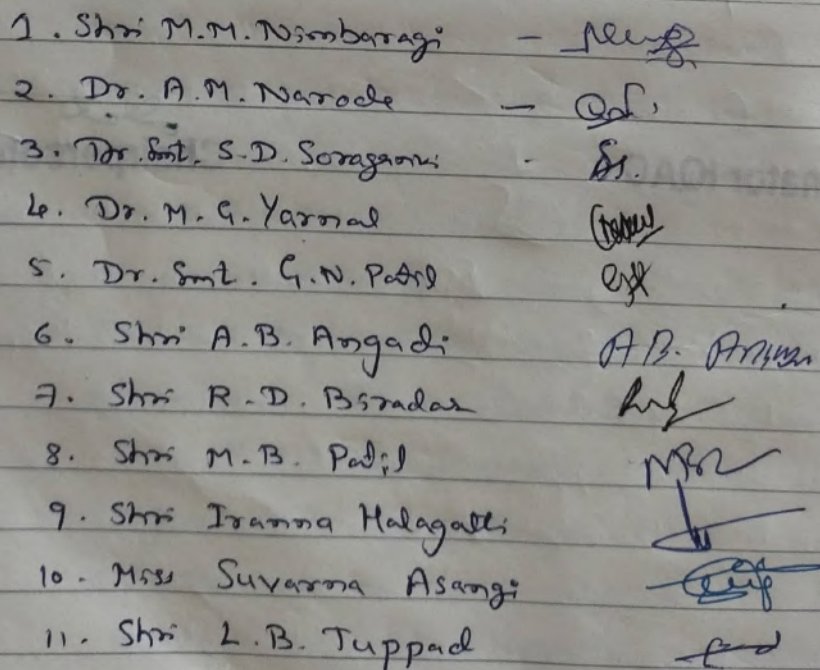 1. Shri M.M. Nimbaragi -
2. Dr. A.M. Narode -
3. Dr. Smt. S.D. Soragaoni -
4. Dr. M.G. Yarnal
5. Dr. Smt. G.N. Patil
6. Shri A.B. Angadi A B.
7. Shri R.D. Biradar
8. Shri M.B. Patil
9. Shri Iranna Halagatti
10. Miss Suvarna Asangi
11. Shri L.B. Tuppad